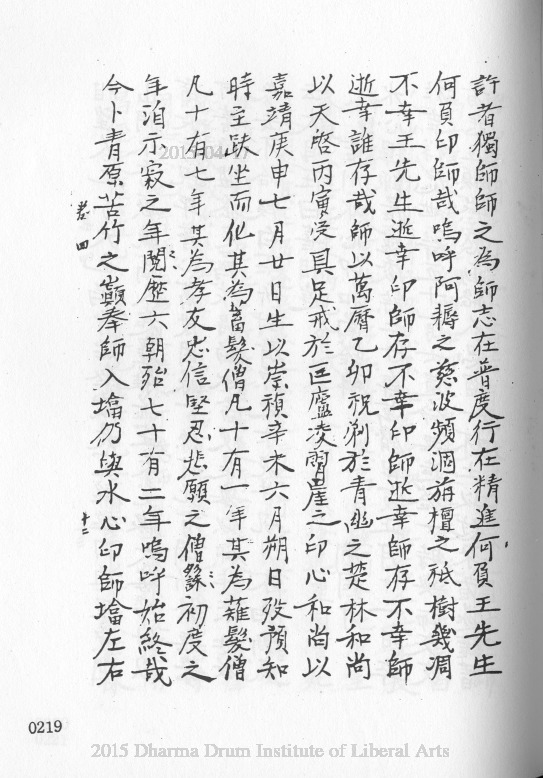 許者獨師師之為師志在普度行在精進何負王先生
何負印師哉嗚呼阿耨之慈波頻涸旃檀之祇樹幾凋
不幸王先生逝幸印師存不幸印師逝幸師存不幸師
逝幸誰存哉師以萬曆乙卯祝剃於青幽之楚林和尚
以天啓丙寅受具足戒於匡廬凌霄崖之印心和尚以
嘉靖庚申七月廿日生以崇禎辛未六月朔日歿預知
時至趺坐而化其為畜髮僧凡十有一年其為薙髮僧
凡十有七年其為孝友忠信堅忍悲願之僧繇初度之
年洎示寂之年閱歷六朝殆七十有二年嗚呼始終哉
今卜青原苦竹之巔奉師入塔仍與水心印師塔左右
卷四
十二
0219
2015 Dharma Drum Institute of Liberal Arts